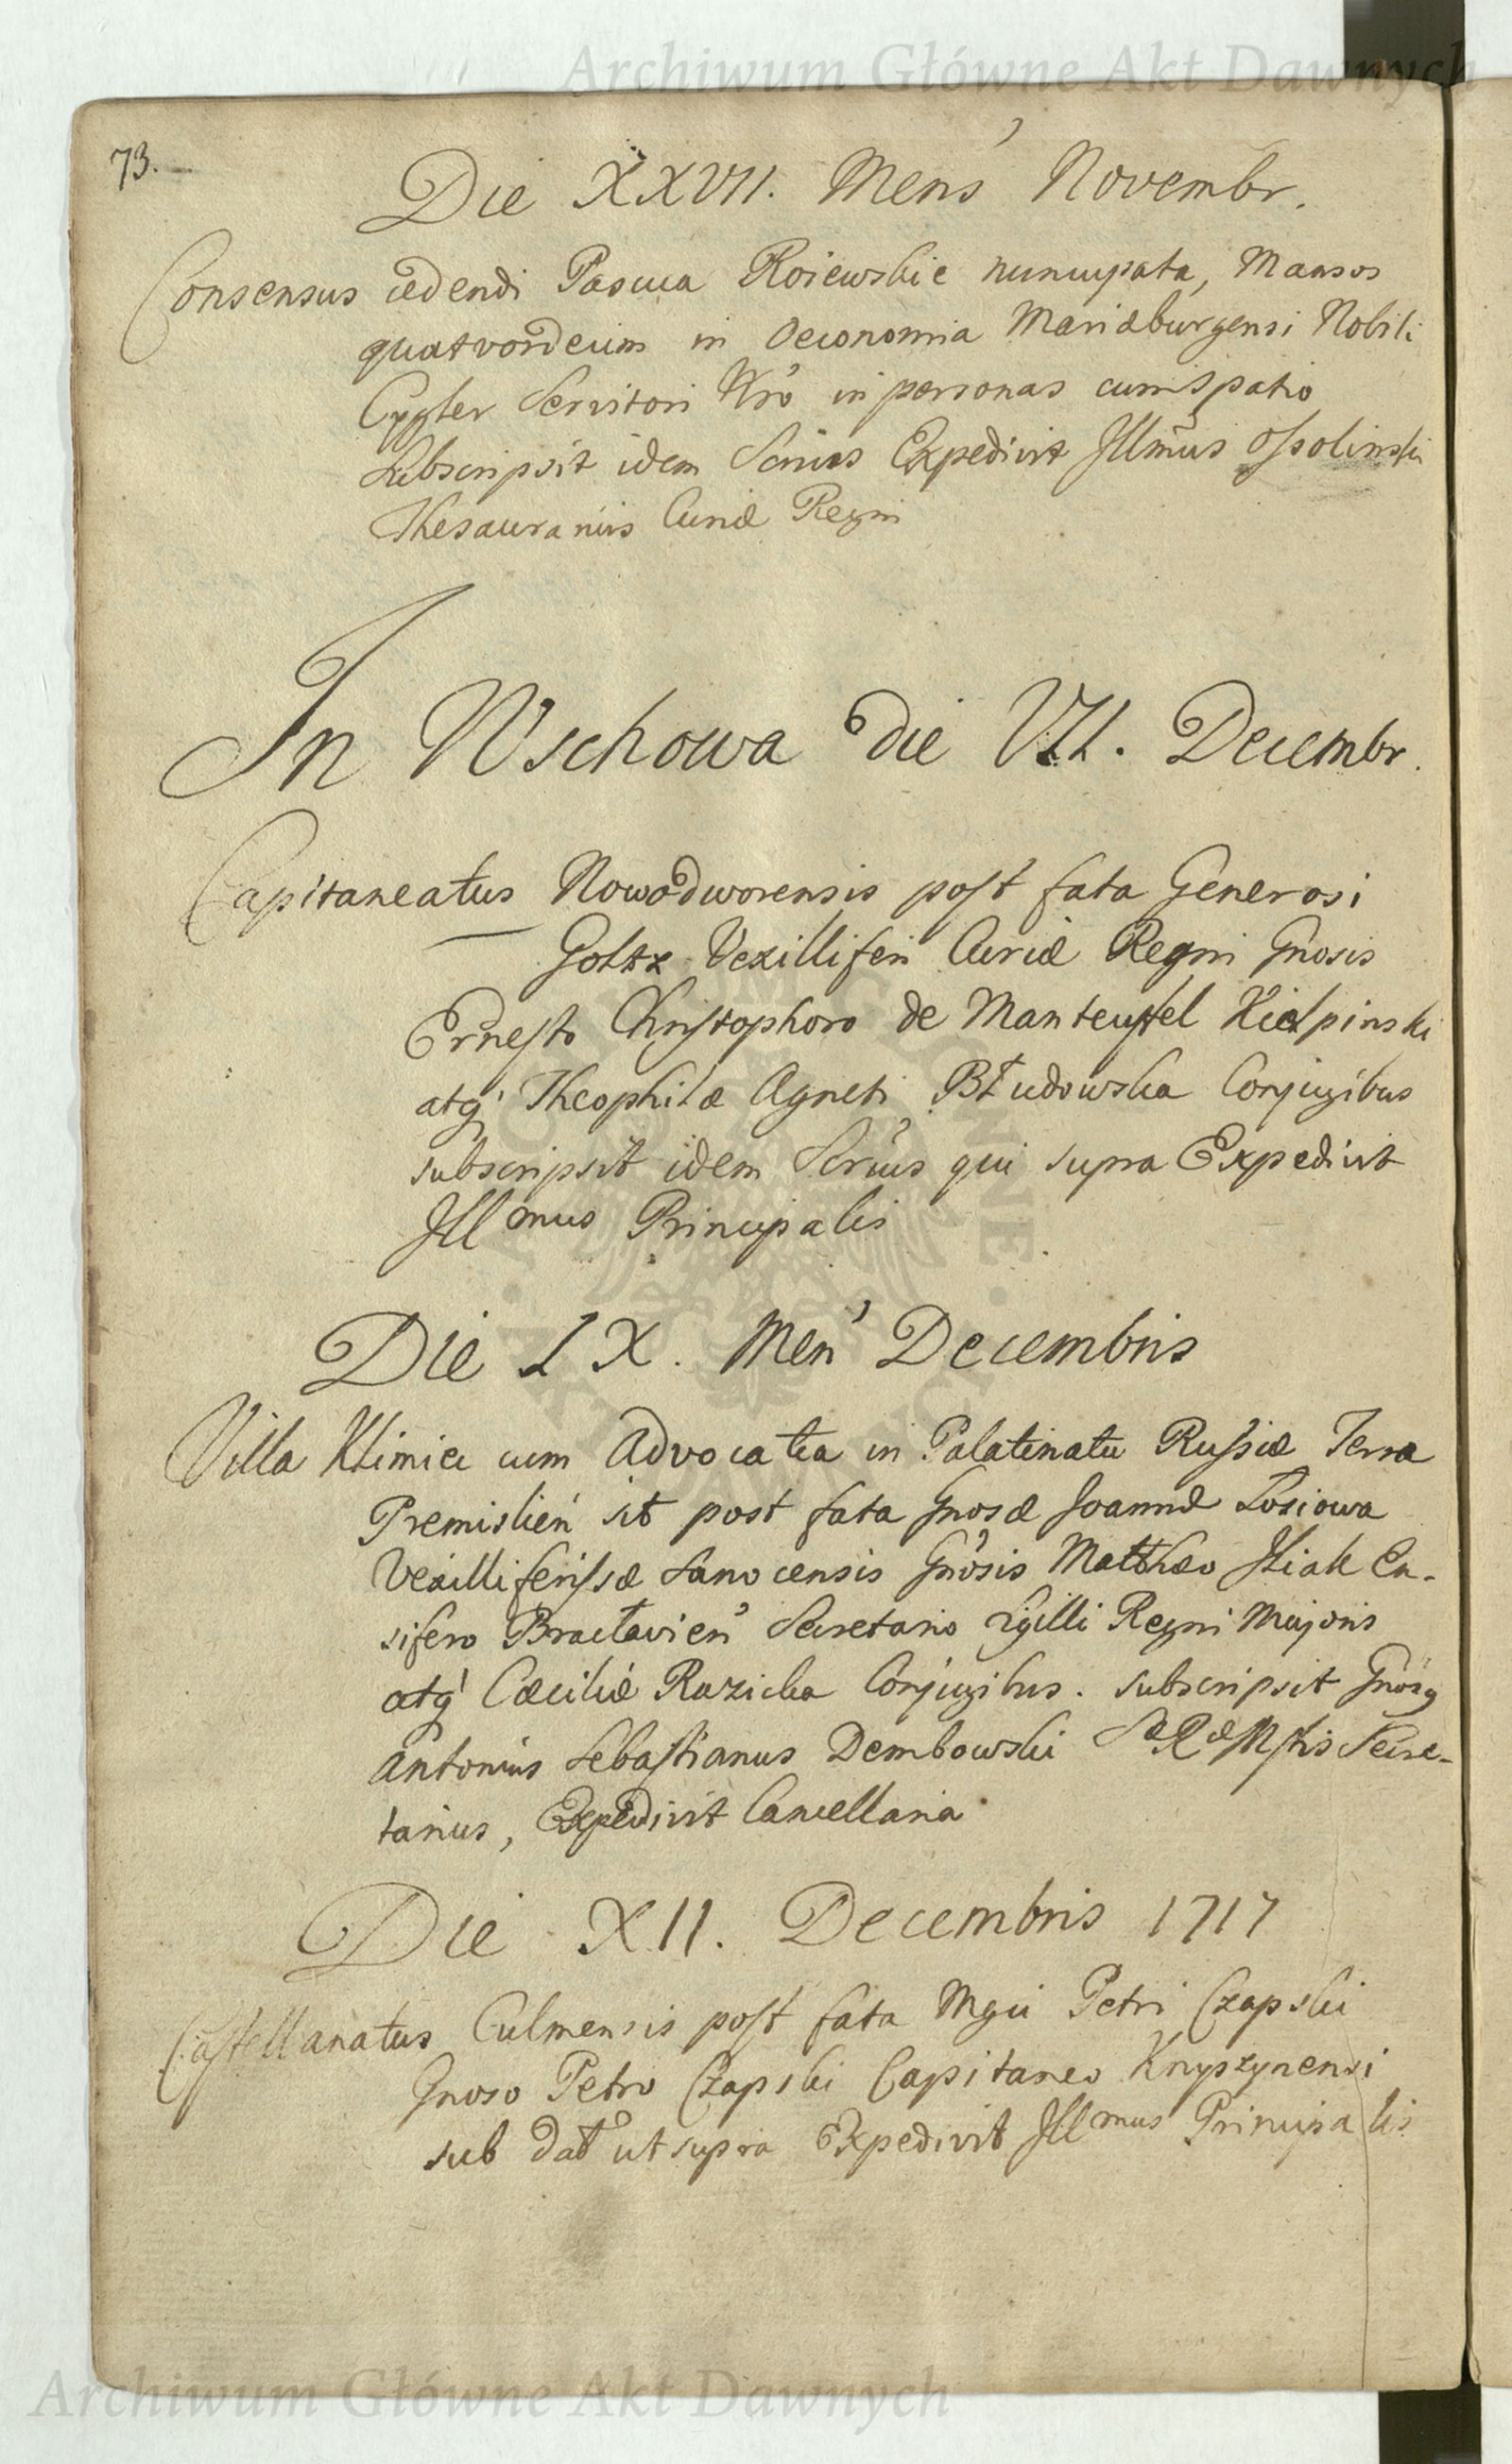 Archiwum Główne Akt Dawnych
73.
Die XXVII. Mens' Novembr.
Consensus cedendi Pascua Roiewskie nuncupata, Mansos
quatvordecim in Oeconomia Mariæburgensi Nobili
Servitori Nro' in personas cum spatio
Subscripsit idem Scrius Expedivit Illmus Ossolinski
Thesaurarius Curiæ Regni
In Wschowa die VII. Decembr.
Capitaneatus Nowodworensis post fata Generosi
Goltz Vexilliferi Curiæ Regni Gnosis
Ernesto Christophoro de Manteuffel Kielpinski
atq' Theophilæ Agneti Błudowska Conjugibus
subscripsit idem Scrius qui supra Expedivit
Illmus Principalis
Die IX. Men' Decembris
Villa Klimiec cum Advocatia in Palatinatu Russiæ Terra
Premislien' sit post fata Gnosæ Joannæ Łosiowa
Vexilliferissæ Sanocensis Gnosis Matthæo Iliak En-
sifero Braclavien' Secretario Sigilli Regni Majoris
atq' Cæciliæ Ruzicka Conjugibus. subscripsit Gnosq
Antonius Sebastianus Dembowski SæRæMstis Secre-
tarius, Expedivit Cancellaria
Die XII. Decembris 1717
Castellanatus Culmensis post fata Mgci Petri Czapski
Gnoso Petro Czapski Capitaneo Knyszynensi
sub dat ut supra Expedivit Illmus Principalis
Archiwum Główne Akt Dawnych